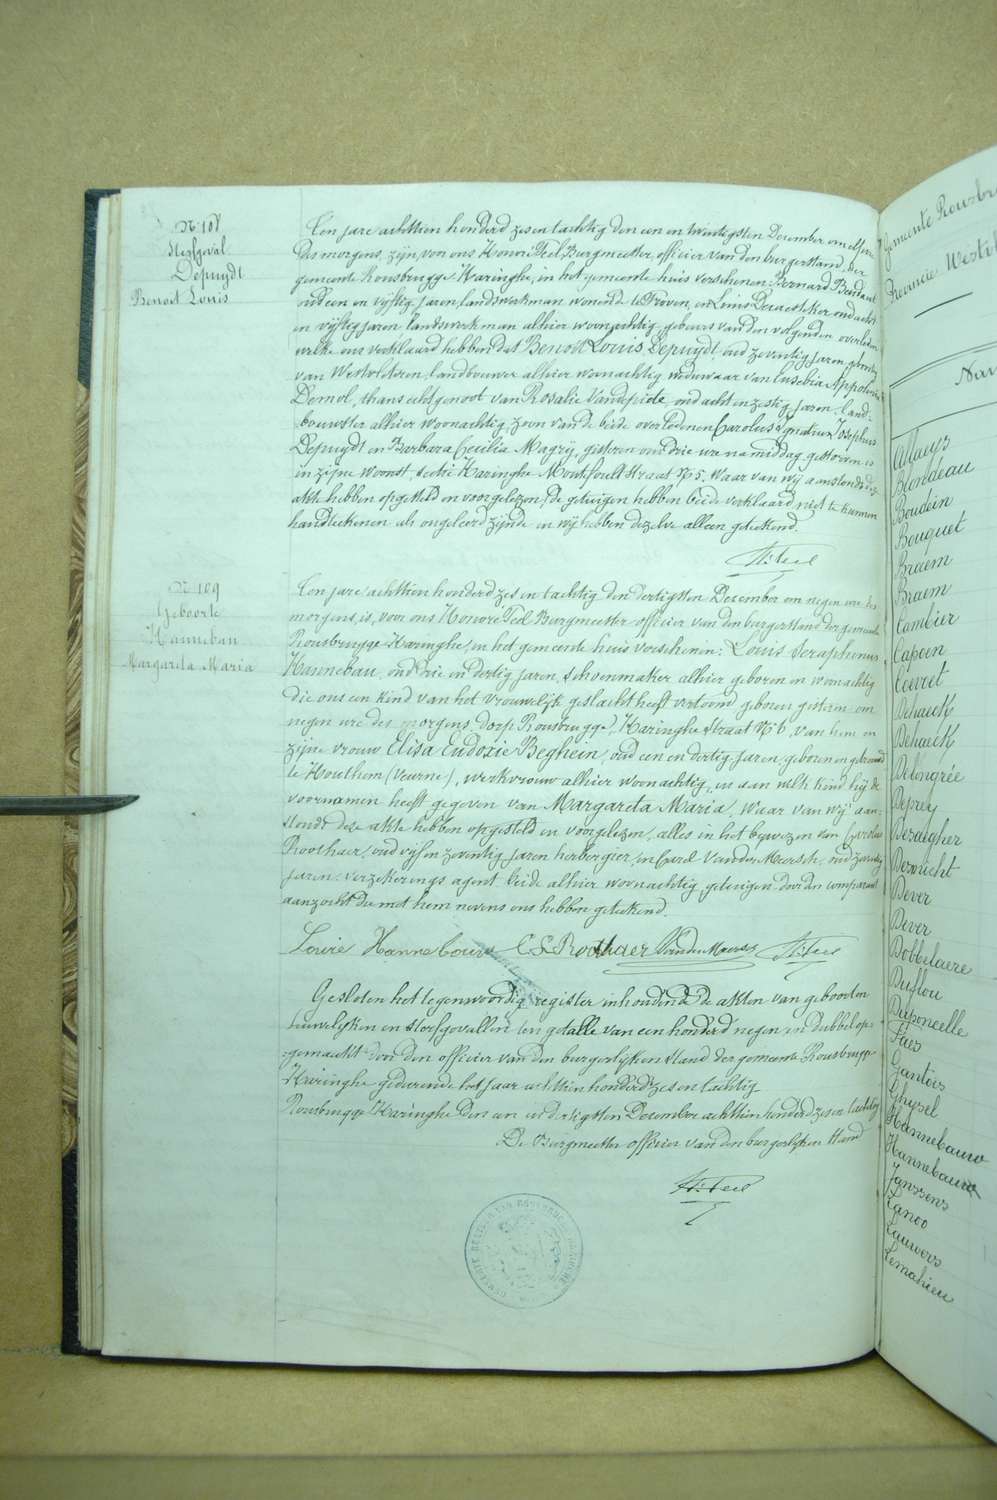 N: 108
Sterfgeval
Depuydt
Benoit Louis
Ten jare achttien honderd zes en tachtig den een en twintigsten December om elf ure
des morgens, zijn, voor ons Honoré Teel Burgmeester, officier van den burgerstand, der
gemeente Rousbrugge Haringhe, in het gemeente huis verschenen Bernard
oud een en vijftig jaren, landswerkman wonende te Proven, en Louis Deraedteker oud acht
en vijftig jaren landswerkman alhier woonachtig, gebuers van den volgenden overleden
welke ons verklaard hebben dat Benoit Louis Depuydt, oud zeventig jaren, geboortig
van Westvleteren, landbouwer alhier woonachtig weduwaar van Eusebia Appolonia
Demol, thans echtgenoot van Rosalie Vandepide, oud acht en zestig jaren, land-
bouwster alhier woonachtig, zoon van de beide overledenen Carolus Ignatius Josephus
Depuydt en Barbara Cecilia Magry, gisteren om drie ure namiddag gestorven is
in zijne woonst, sectie Haringhe Straat No 5. Waar van wij aanstonds deze
akte hebben opgesteld en voorgelezen, de getuigen hebben beide verklaard niet te kunnen
handteekenen als ongeleerd zijnde en wij hebben dezelve alleen geteekend.
H. Teel
N: 109
Geboorte
Hannebau
Margareta Maria
Ten jare achttien honderd zes en tachtig den dertigsten December om negen ure des
morgens, is, voor ons Honoré Teel Burgmeester officier van den burgerstand der gemeente
Rousbrugge Haringhe, in het gemeente huis verschenen: Louis Seraphinus
Hannebau, oud drie en dertig jaren, schoenmaker alhier geboren en woonachtig
die ons een kind van het vrouwelijk geslacht heeft vertoond geboren gisteren om
negen ure des morgens dorp Rousbrugge, Haringhe straat No 6, van hem en
zijne vrouw Elisa Eudozie Beghein, oud een en dertig jaren, geboren en getrouwd
te Houthem (Veurne), werkvrouw alhier woonachtig, en aan welk kind hij de
voornamen heeft gegeven van Margareta Maria, Waar van wij aan-
stonds deze akte hebben opgesteld en voorgelezen, alles in het bijwezen van Carolus
Roothaer, oud vijf en zeventig jaren herbergier, en Carel Vander Meersch, oud zeventig
jaren, verzekerings agent beide alhier woonachtig, getuigen door den comparant
aanzocht die met hem nevens ons hebben geteekend.
Louis Hannebauw C L Roothaer Vander Meersch H. Teel
Gesloten het tegenwoordig register inhoudende de akten van geboorten
huwelijken en sterfgevallen ten getalle van een honderd negen en dubbel op-
gemaakt door den officier van den burgerlijken stand der gemeente Rousbrugge-
Haringhe gedurende het jaar achttien honderd zes en tachtig
Rousbrugge Haringhe den een en dertigsten December achttien honderd zes en tachtig
De Burgmeester officier van den burgerlijken stand
H. Teel
Gemeente Rousbr
Provincie West
Nam
Allaeys
Blondeau
Boudein
Bouquet
Braem
Braem
Cambier
Capoen
Couvret
Dehaeck
Dehaeck
Delengrée
Deprey
Dezaegher
Dewricht
Dever
Dever
Dobbelaere
Duflou
Duponcelle
Fties
Gantois
Ghysel
Hannebauw
Hannebauw
Janssens
Lanoo
Lauwers
Lemahieu